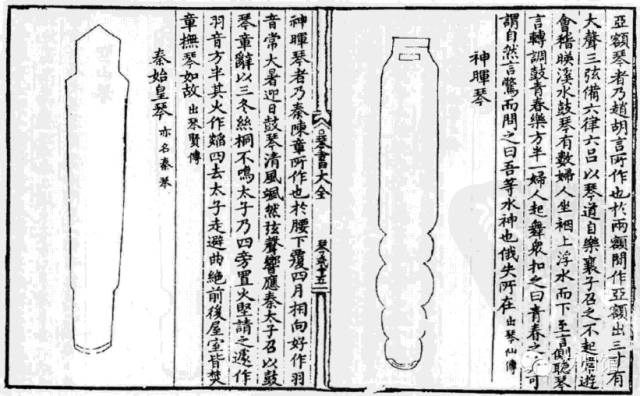 亞額琴者乃趙胡言所作也於兩額間作亞額出三寸有
大聲三弦備六律六呂以琴道自樂襄子召之不起常遊
會稽暎溪水鼓琴有數婦人坐裀上浮水而下至言側聽琴
言轉調鼓青春樂方半一婦人起舞衆扣之曰青春之可
謂自然言驚而問之曰吾等水神也俄失所在 出琴仙傳
神暉琴
琴書大全
神暉琴者乃秦陳章所作也於腰下覆四月相向好作羽
音常大暑迎日鼓琴清風颯然弦聲響應秦太子召以鼓
琴章辭以三冬絲桐不鳴太子乃四旁置火堅請之遂作
羽音方半其火作焰四去太子走避曲絶前後屋室皆焚
章撫琴如故 出琴賢傳
秦始皇琴 亦名秦琴